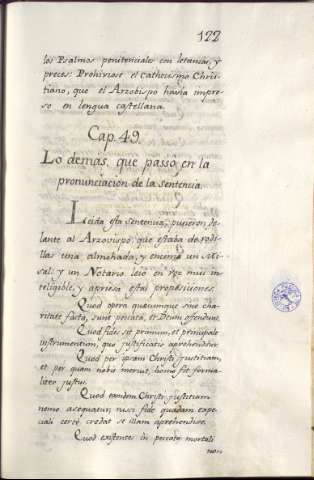 122
los Psalmos penitenciales con letanias, y
preces: Prohiviose el Cathecismo Chris-
tiano, que el Arzobispo havia impre-
so en lengua castellana.
Cap. 49.
Lo demas, que passo, en la
pronunciacion de la sentencia.
Leida esta sentencia, pusieron de-
lante al Arzovispo, que estaba de rodi-
llas una almohada, y encima un Mi-
sal: y un Notario leio en voz mui in-
teligible, y apriesa estas proposiciones.
Quod opera quæcumque sine cha-
ritate facta, sunt peccata, et Deum offendunt.
Quod fides, sit primum, et principale
instrumentum, quo justificatio aprehenditur.
Quod per ipsam Christi justitiam,
et per quam nobis meruit, homo fit forma-
liter justus.
Quod eandem Christi justitiam
nemo assequatur, nisi fide quadam espe-
ciali certo credat se illam aprehendisse.
Quod existentes in peccato mortali
non